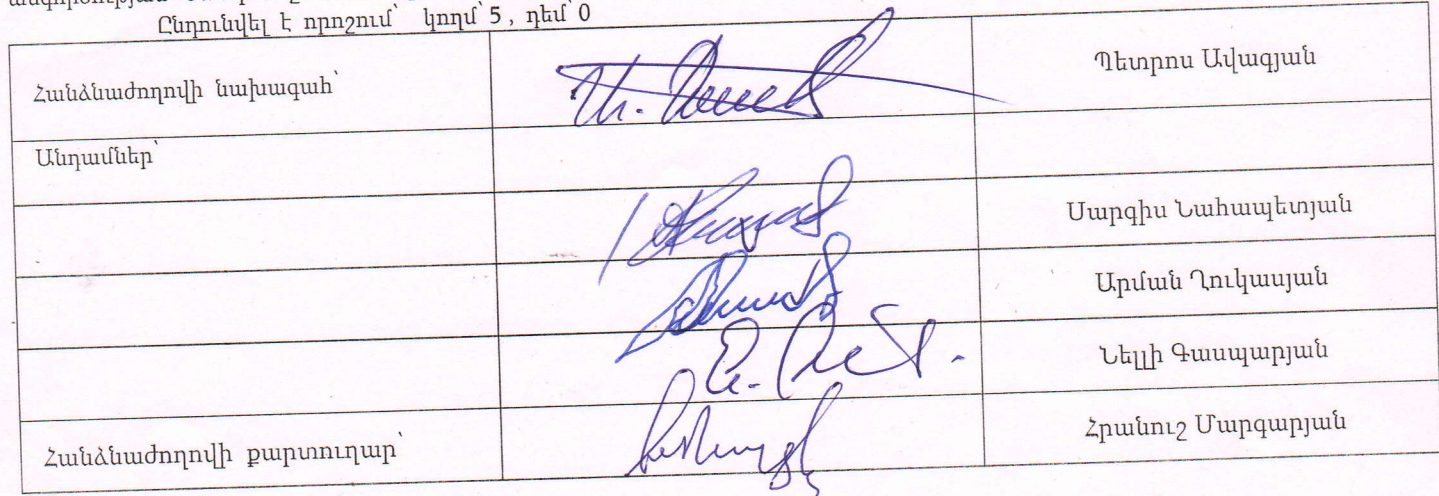 Ընդունվել է որոշում՝ կողմ՝ 5, դեմ՝ 0
Հանձնաժողովի նախագահ՝ Պետրոս Ավագյան
Անդամներ՝
Սարգիս Նահապետյան
Արման Ղուկասյան
Նելլի Գասպարյան
Հանձնաժողովի քարտուղար՝ Հրանուշ Մարգարյան